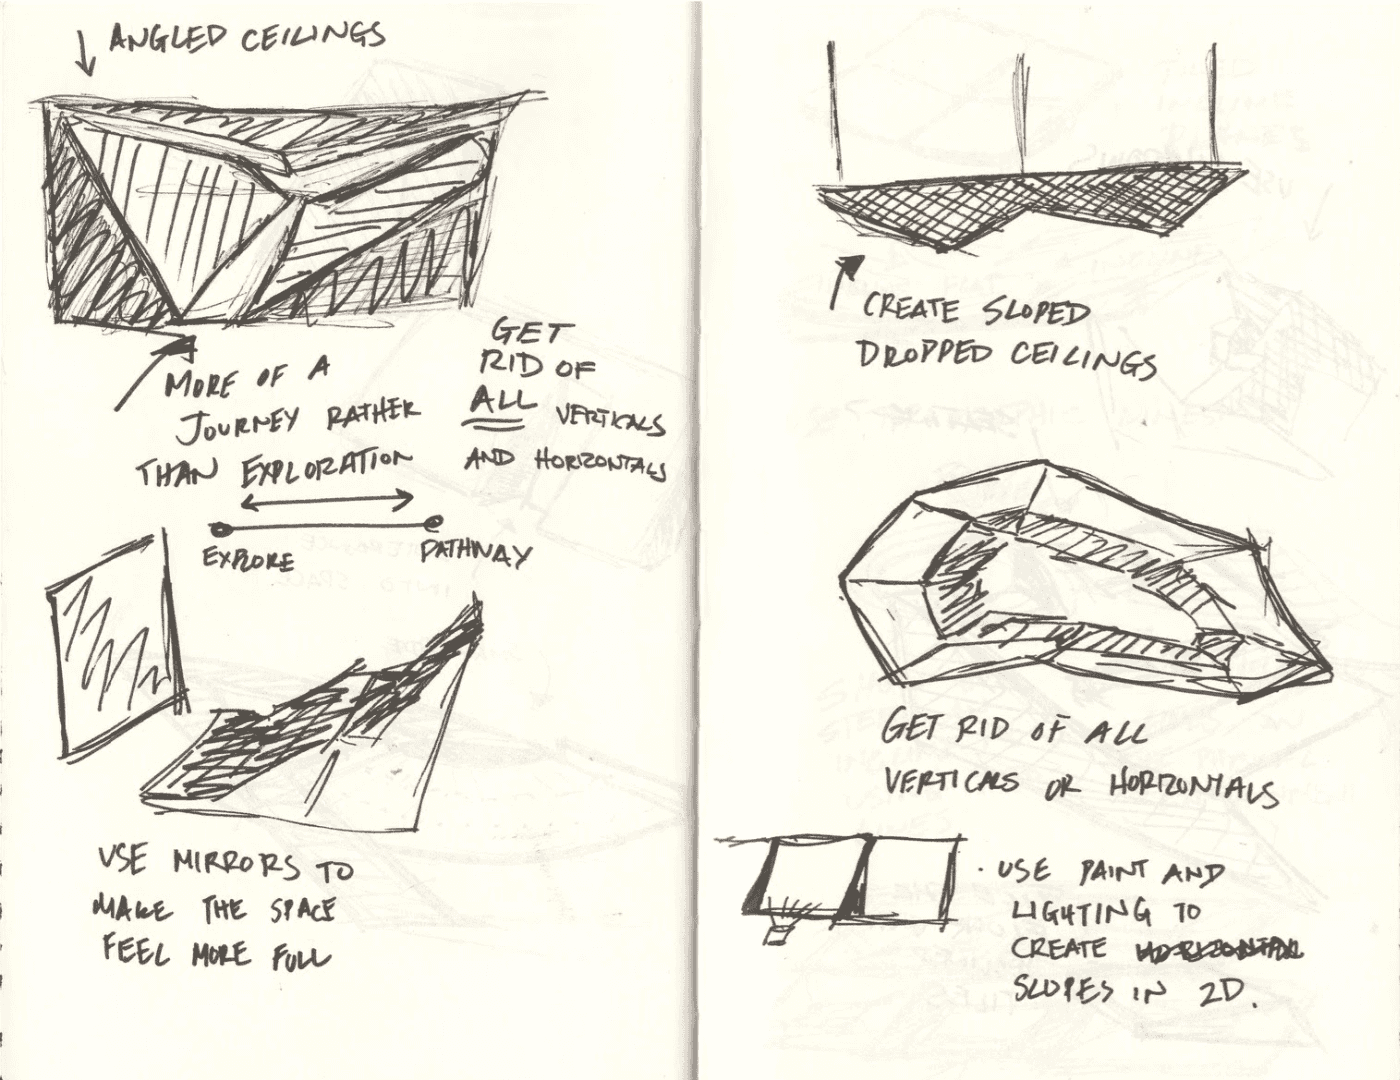 ANGLED CEILINGS
MORE OF A
JOURNEY RATHER
THAN EXPLORATION
GET
RID OF
ALL VERTICALS
AND HORIZONTALS
EXPLORE PATHWAY
USE MIRRORS TO
MAKE THE SPACE
FEEL MORE FULL
CREATE SLOPED
DROPPED CEILINGS
GET RID OF ALL
VERTICALS OR HORIZONTALS
· USE PAINT AND
LIGHTING TO
CREATE HORIZONTAL
SLOPES IN 2D.